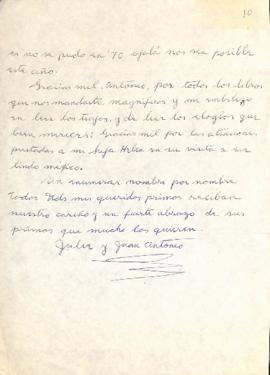 10
es no se pudo en '70 ojalá nos sea posible
este año.
Gracias mil, Antonio, por todos los libros
que nos mandaste, magníficos y mi
en leer los tuyos, y de leer los elogios que
bien mereces; Gracias mil por las atenciones
prestadas a mi hija en su visita a ese
lindo méjico.
Sin enumerar nombre por nombre
todos Uds mis queridos primos reciban
nuestro cariño y un fuerte abrazo de sus
primos que mucho los quieren.
Julia y Juan Antonio